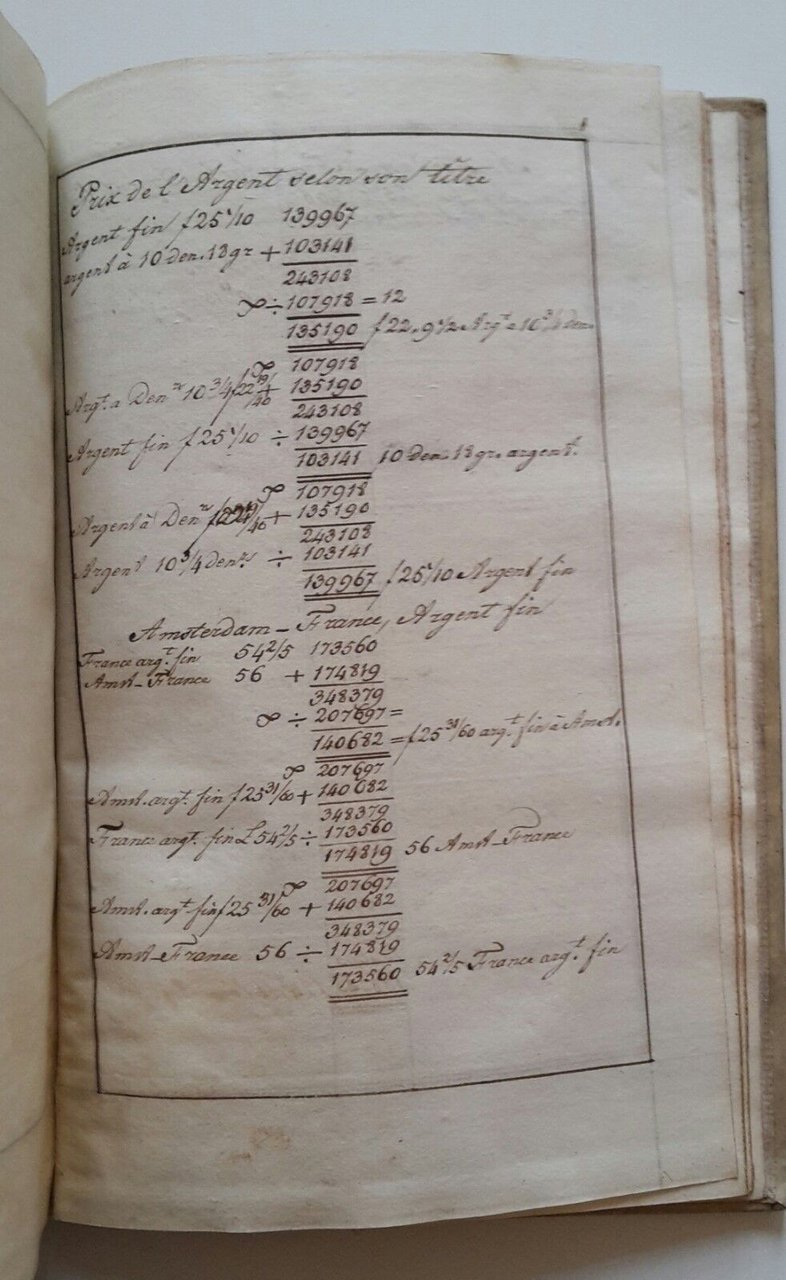 Prix de l'Argent selon son titre
Argent fin f25 1/10 139967
argent à 10 den. 18 gr + 103141
243108
÷ 107918 = 12
135190 f22. 9 1/2 Argt a 10 3/4 den.
107918
Argt. a Den.rs 10 3/4 f22 19/40 + 135190
243108
Argent fin f25 1/10 ÷ 139967
103141 10 Den. 18 gr. argent.
107918
Argent à Den.rs + 135190
243108
Argent 10 3/4 den.rs ÷ 103141
139967 f25 1/10 Argent fin
Amsterdam - France, Argent fin
France argt. fin 54 2/5 173560
Amst - France 56 + 174819
348379
÷ 207697 =
140682 = f25 31/60 argt fin à Amst.
207697
Amst. argt. fin f25 31/60 + 140682
348379
France argt. fin £ 54 2/5 ÷ 173560
174819 56 Amst - France
207697
Amst. argt fin f25 31/60 + 140682
348379
Amst - France 56 ÷ 174819
173560 54 2/5 France argt. fin